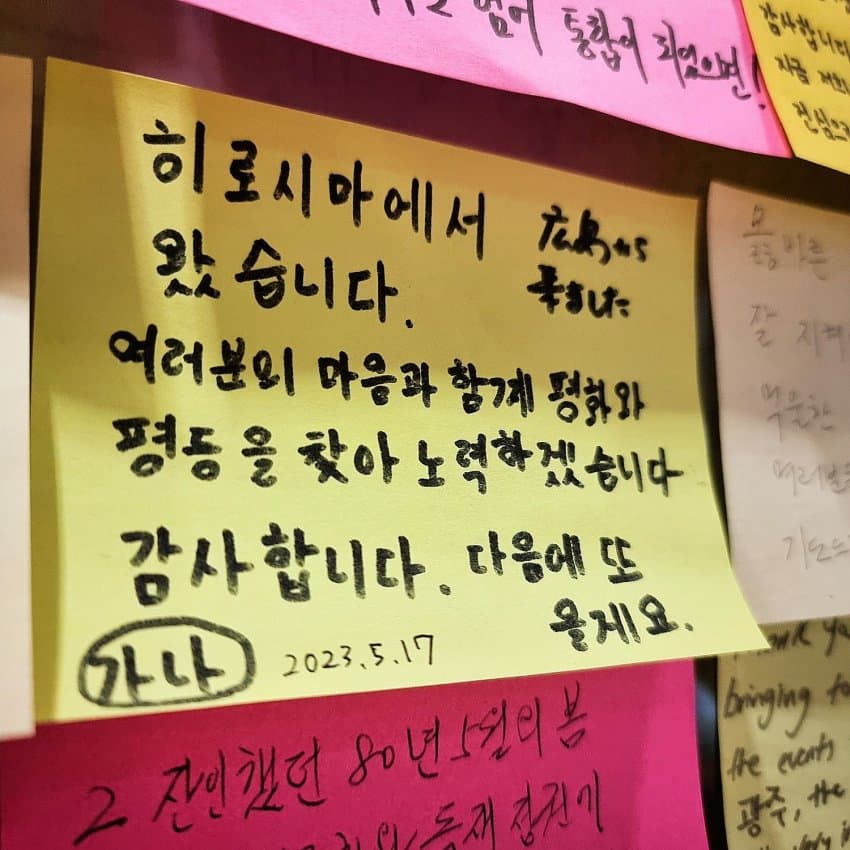 넘어 통합이 되었으면!
감사합니다
지금 저희
진심으로
히로시마에서
왔습니다.
広島から
来ました
여러분의 마음과 함께 평화와
평등을 찾아 노력하겠습니다
감사합니다. 다음에 또
올게요.
가나
2023.5.17
올바른
잘 지켜
억울한
여러분
2 잔인했던 80년 5월의 봄
Thank you
bringing
the events
광주, the
very in